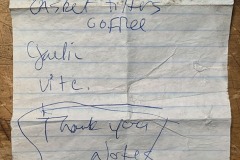 Basket Filters
Coffee
Garlic
vitc.
Thank you
Notes